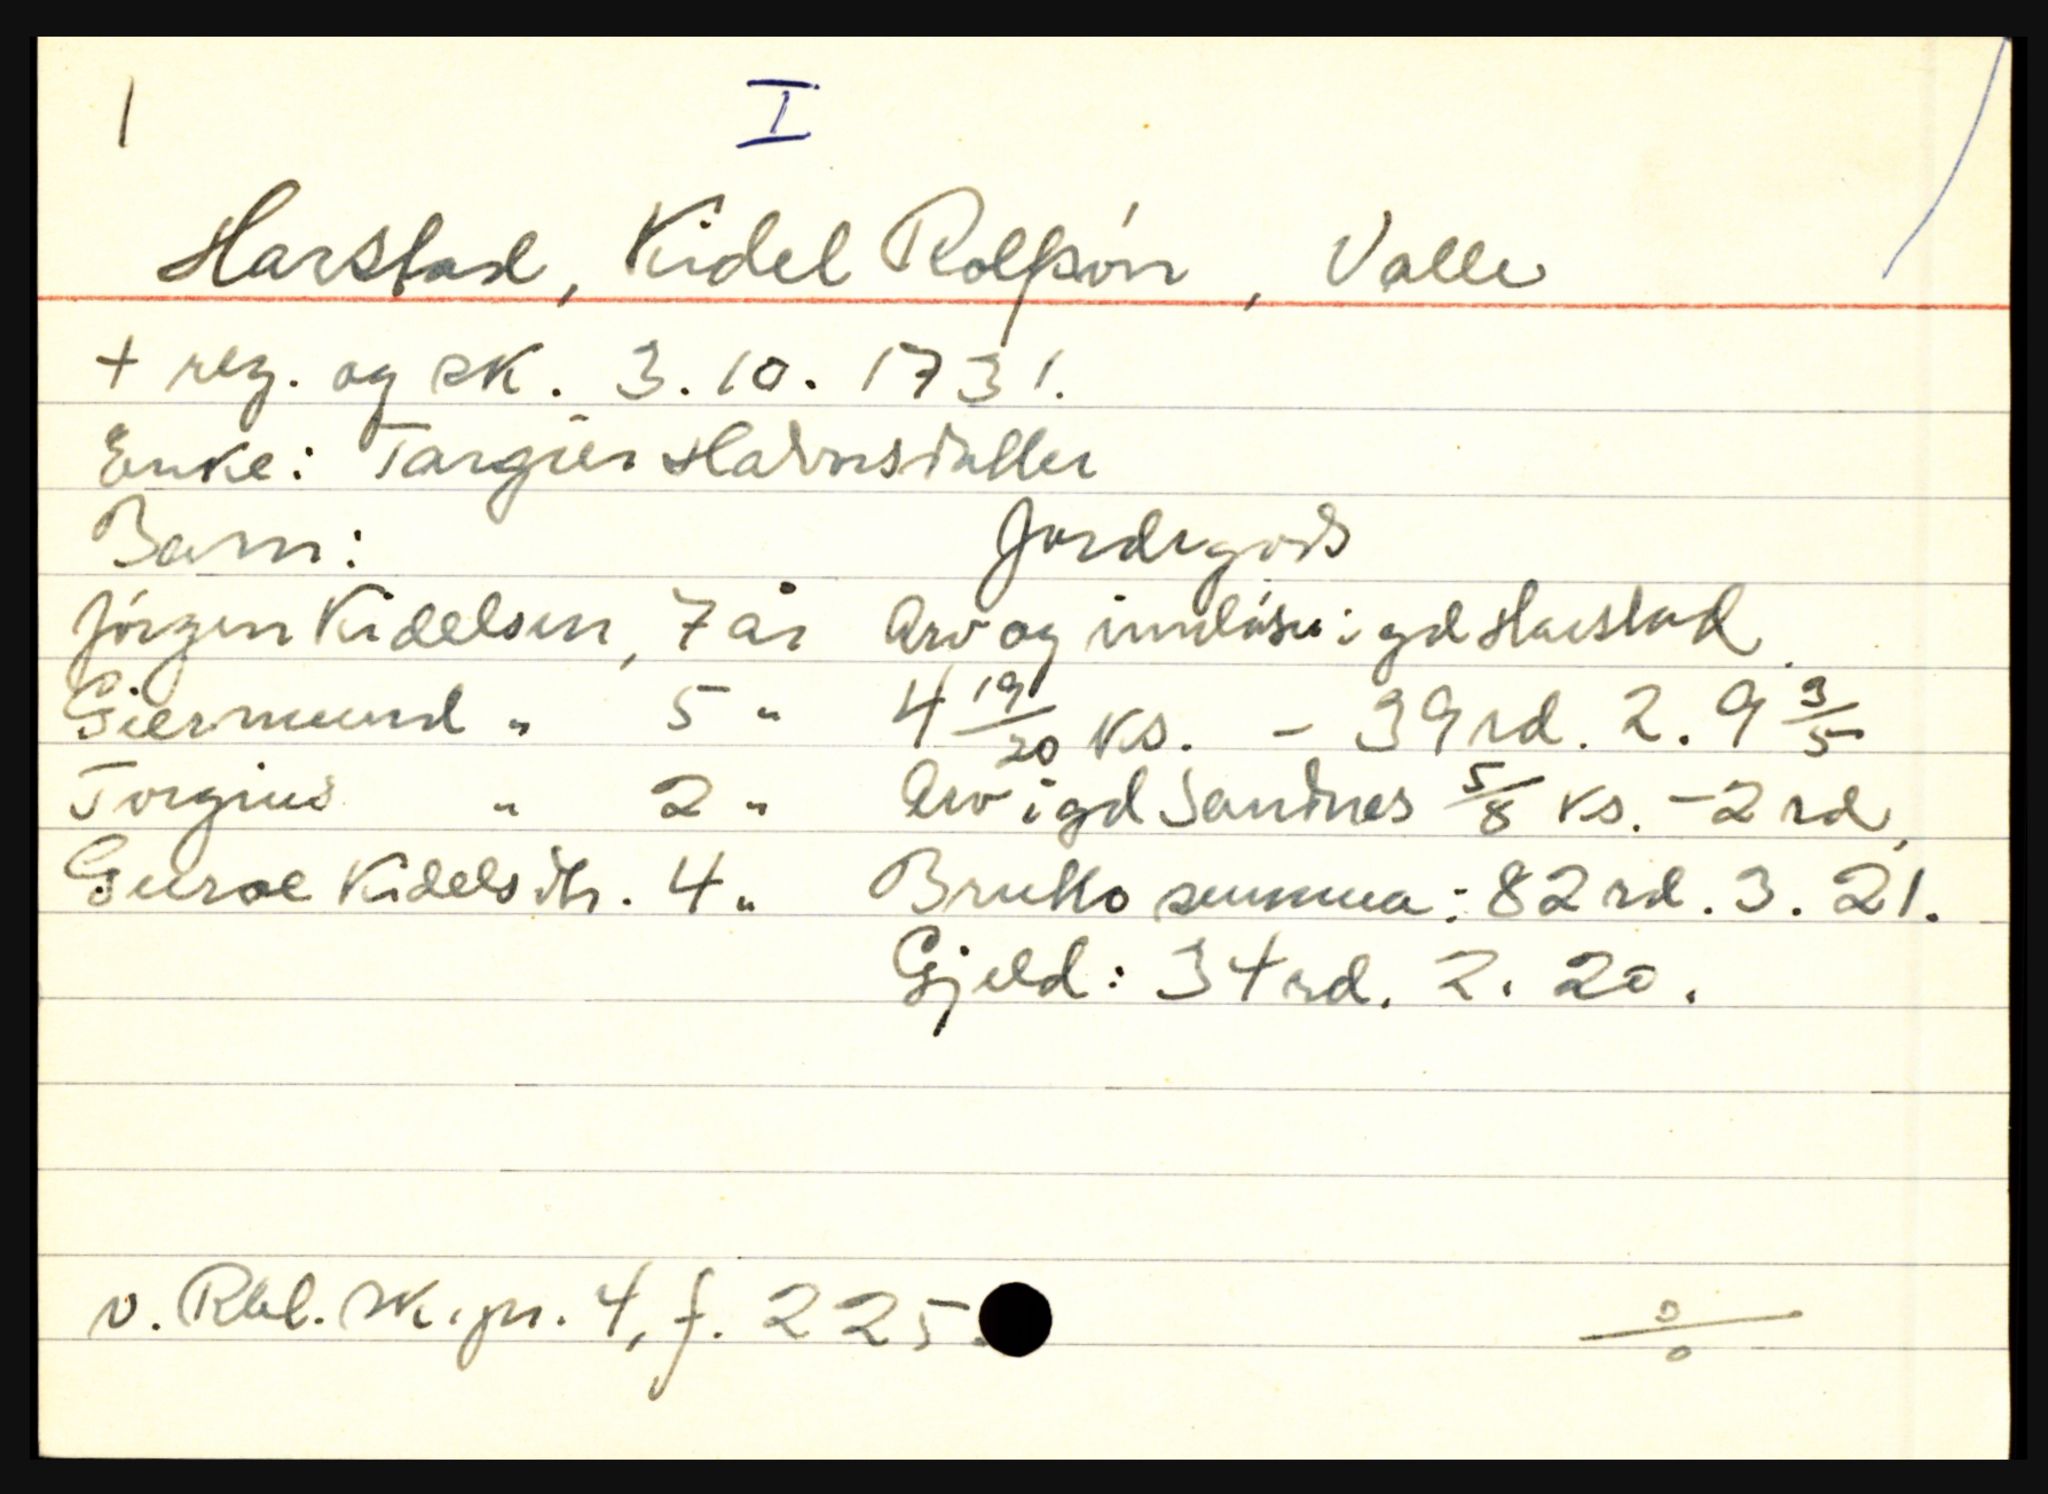 1 I
Harstad, Kidel Rolfsøn, Valle
+ reg. og sk. 3.10.1731.
Enke: Targier Halvorsdatter
Barn: Jordegods
Jörgen Kidelsen, 7 år Arv og innløsn i gd Harstad.
Giermund " 5 " 4 19/20 ks. - 39 rd. 2. 9 3/5
Torgius " 2 " Arv i gd Sandnes 5/8 ks. - 2 rd.
Guroe Kidelsdtr. 4 " Brutto summa: 82 rd. 3. 21.
Gjeld: 34 rd. 2. 20.
v. Rbl. sk.pr. 4, f. 225.